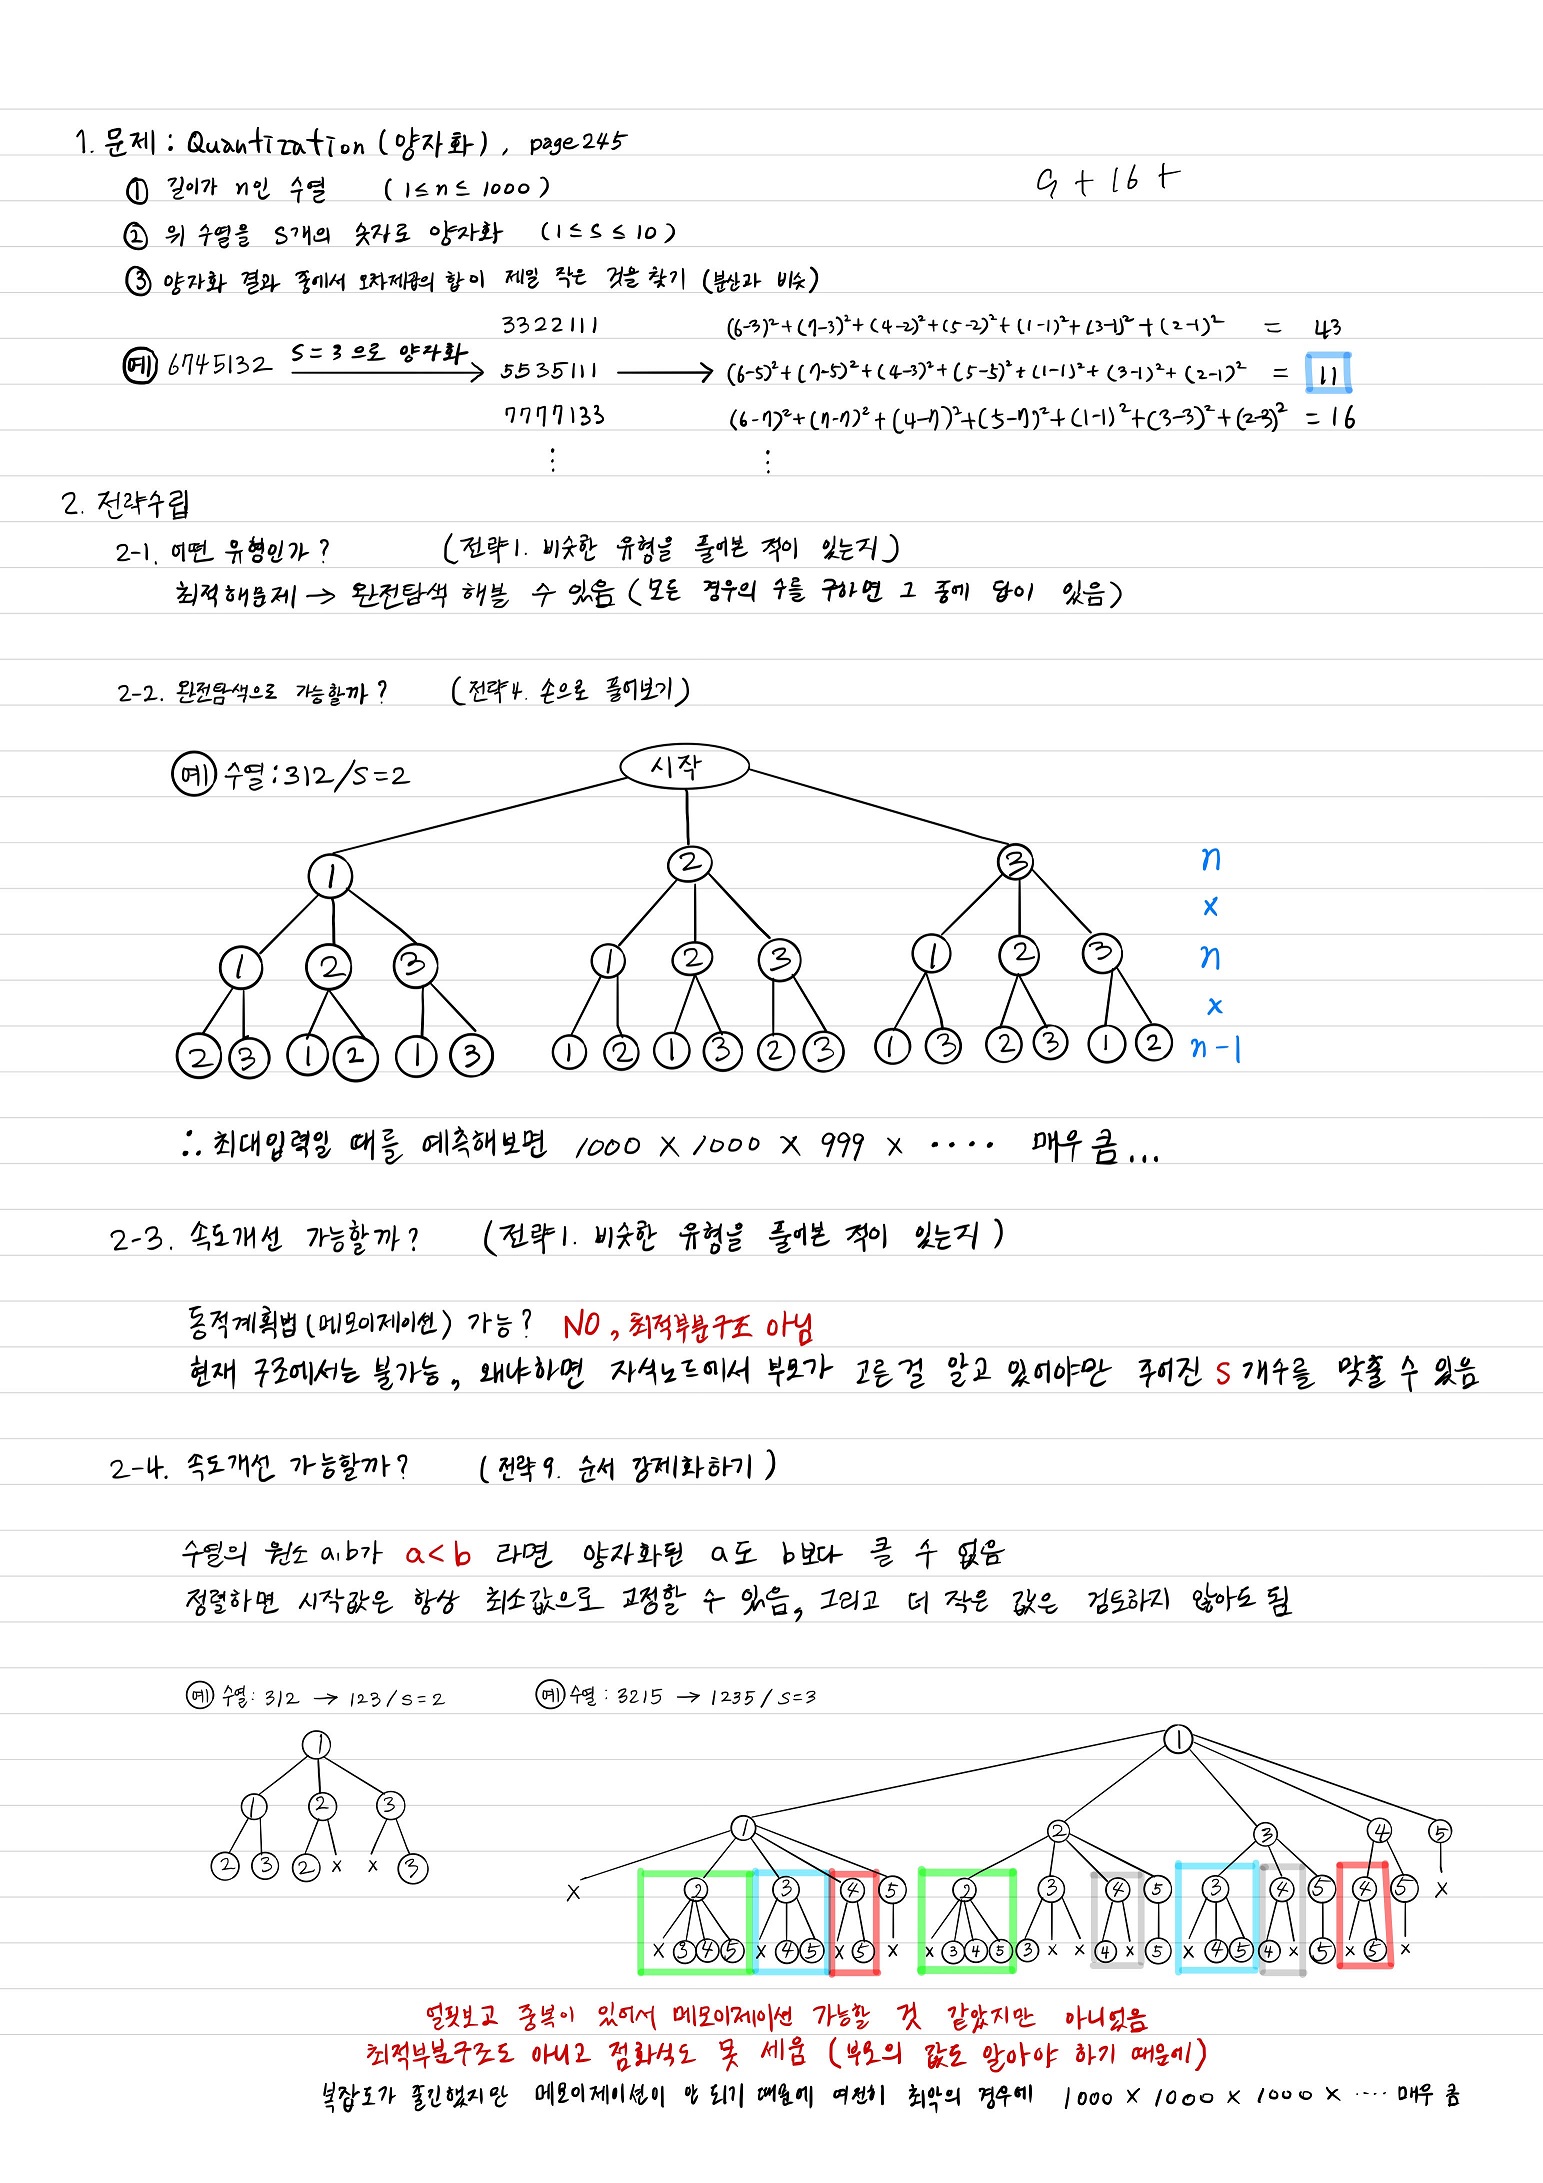 1. 문제 : Quantization (양자화), page 245
9 + 16 +
① 길이가 n인 수열 (1≤n≤1000)
② 위 수열을 S개의 숫자로 양자화 (1≤S≤10)
③ 양자화 결과 중에서 오차제곱의 합이 제일 작은 것을 찾기 (분산과 비슷)
3322111 (6-3)²+(7-3)²+(4-2)²+(5-2)²+(1-1)²+(3-1)²+(2-1)² = 43
예 6745132 S=3으로 양자화 5535111 (6-5)²+(7-5)²+(4-3)²+(5-5)²+(1-1)²+(3-1)²+(2-1)² = 11
7777133 (6-7)²+(7-7)²+(4-7)²+(5-7)²+(1-1)²+(3-3)²+(2-3)² = 16
⋮ ⋮
2. 전략수립
2-1. 어떤 유형인가? (전략1. 비슷한 유형을 풀어본 적이 있는지)
최적해문제 → 완전탐색 해볼 수 있음 (모든 경우의 수를 구하면 그 중에 답이 있음)
2-2. 완전탐색으로 가능할까? (전략4. 손으로 풀어보기)
예 수열:312/S=2 시작
1 2 3 n
x
1 2 3 1 2 3 1 2 3 n
x
2 3 1 2 1 3 1 2 1 3 2 3 1 3 2 3 1 2 n-1
∴ 최대입력일 때를 예측해보면 1000 X 1000 X 999 x ···· 매우 큼...
2-3. 속도개선 가능할까? (전략1. 비슷한 유형을 풀어본 적이 있는지)
동적계획법(메모이제이션) 가능? NO, 최적부분구조 아님
현재 구조에서는 불가능, 왜냐하면 자식노드에서 부모가 고른걸 알고 있어야만 주어진 S 개수를 맞출 수 있음
2-4. 속도개선 가능할까? (전략9. 순서 강제화하기)
수열의 원소 a,b가 a<b 라면 양자화된 a도 b보다 클 수 없음
정렬하면 시작값은 항상 최소값으로 고정할 수 있음, 그리고 더 작은 값은 검토하지 않아도 됨
예 수열: 312 → 123/S=2 예 수열: 3215 → 1235/S=3
1 1
1 2 3 1 2 3 4 5
2 3 2 x x 3 x 2 3 4 5 2 3 4 5 3 4 5 4 5 x
x 3 4 5 x 4 5 x 5 x x 3 4 5 3 x x 4 x 5 x 4 5 4 x 5 x 5 x
얼핏보고 중복이 있어서 메모이제이션 가능할 것 같았지만 아니었음
최적부분구조도 아니고 점화식도 못 세움 (부모의 값도 알아야 하기 때문에)
복잡도가 줄긴했지만 메모이제이션이 안 되기 때문에 여전히 최악의 경우에 1000 X 1000 X 1000 X ···· 매우 큼